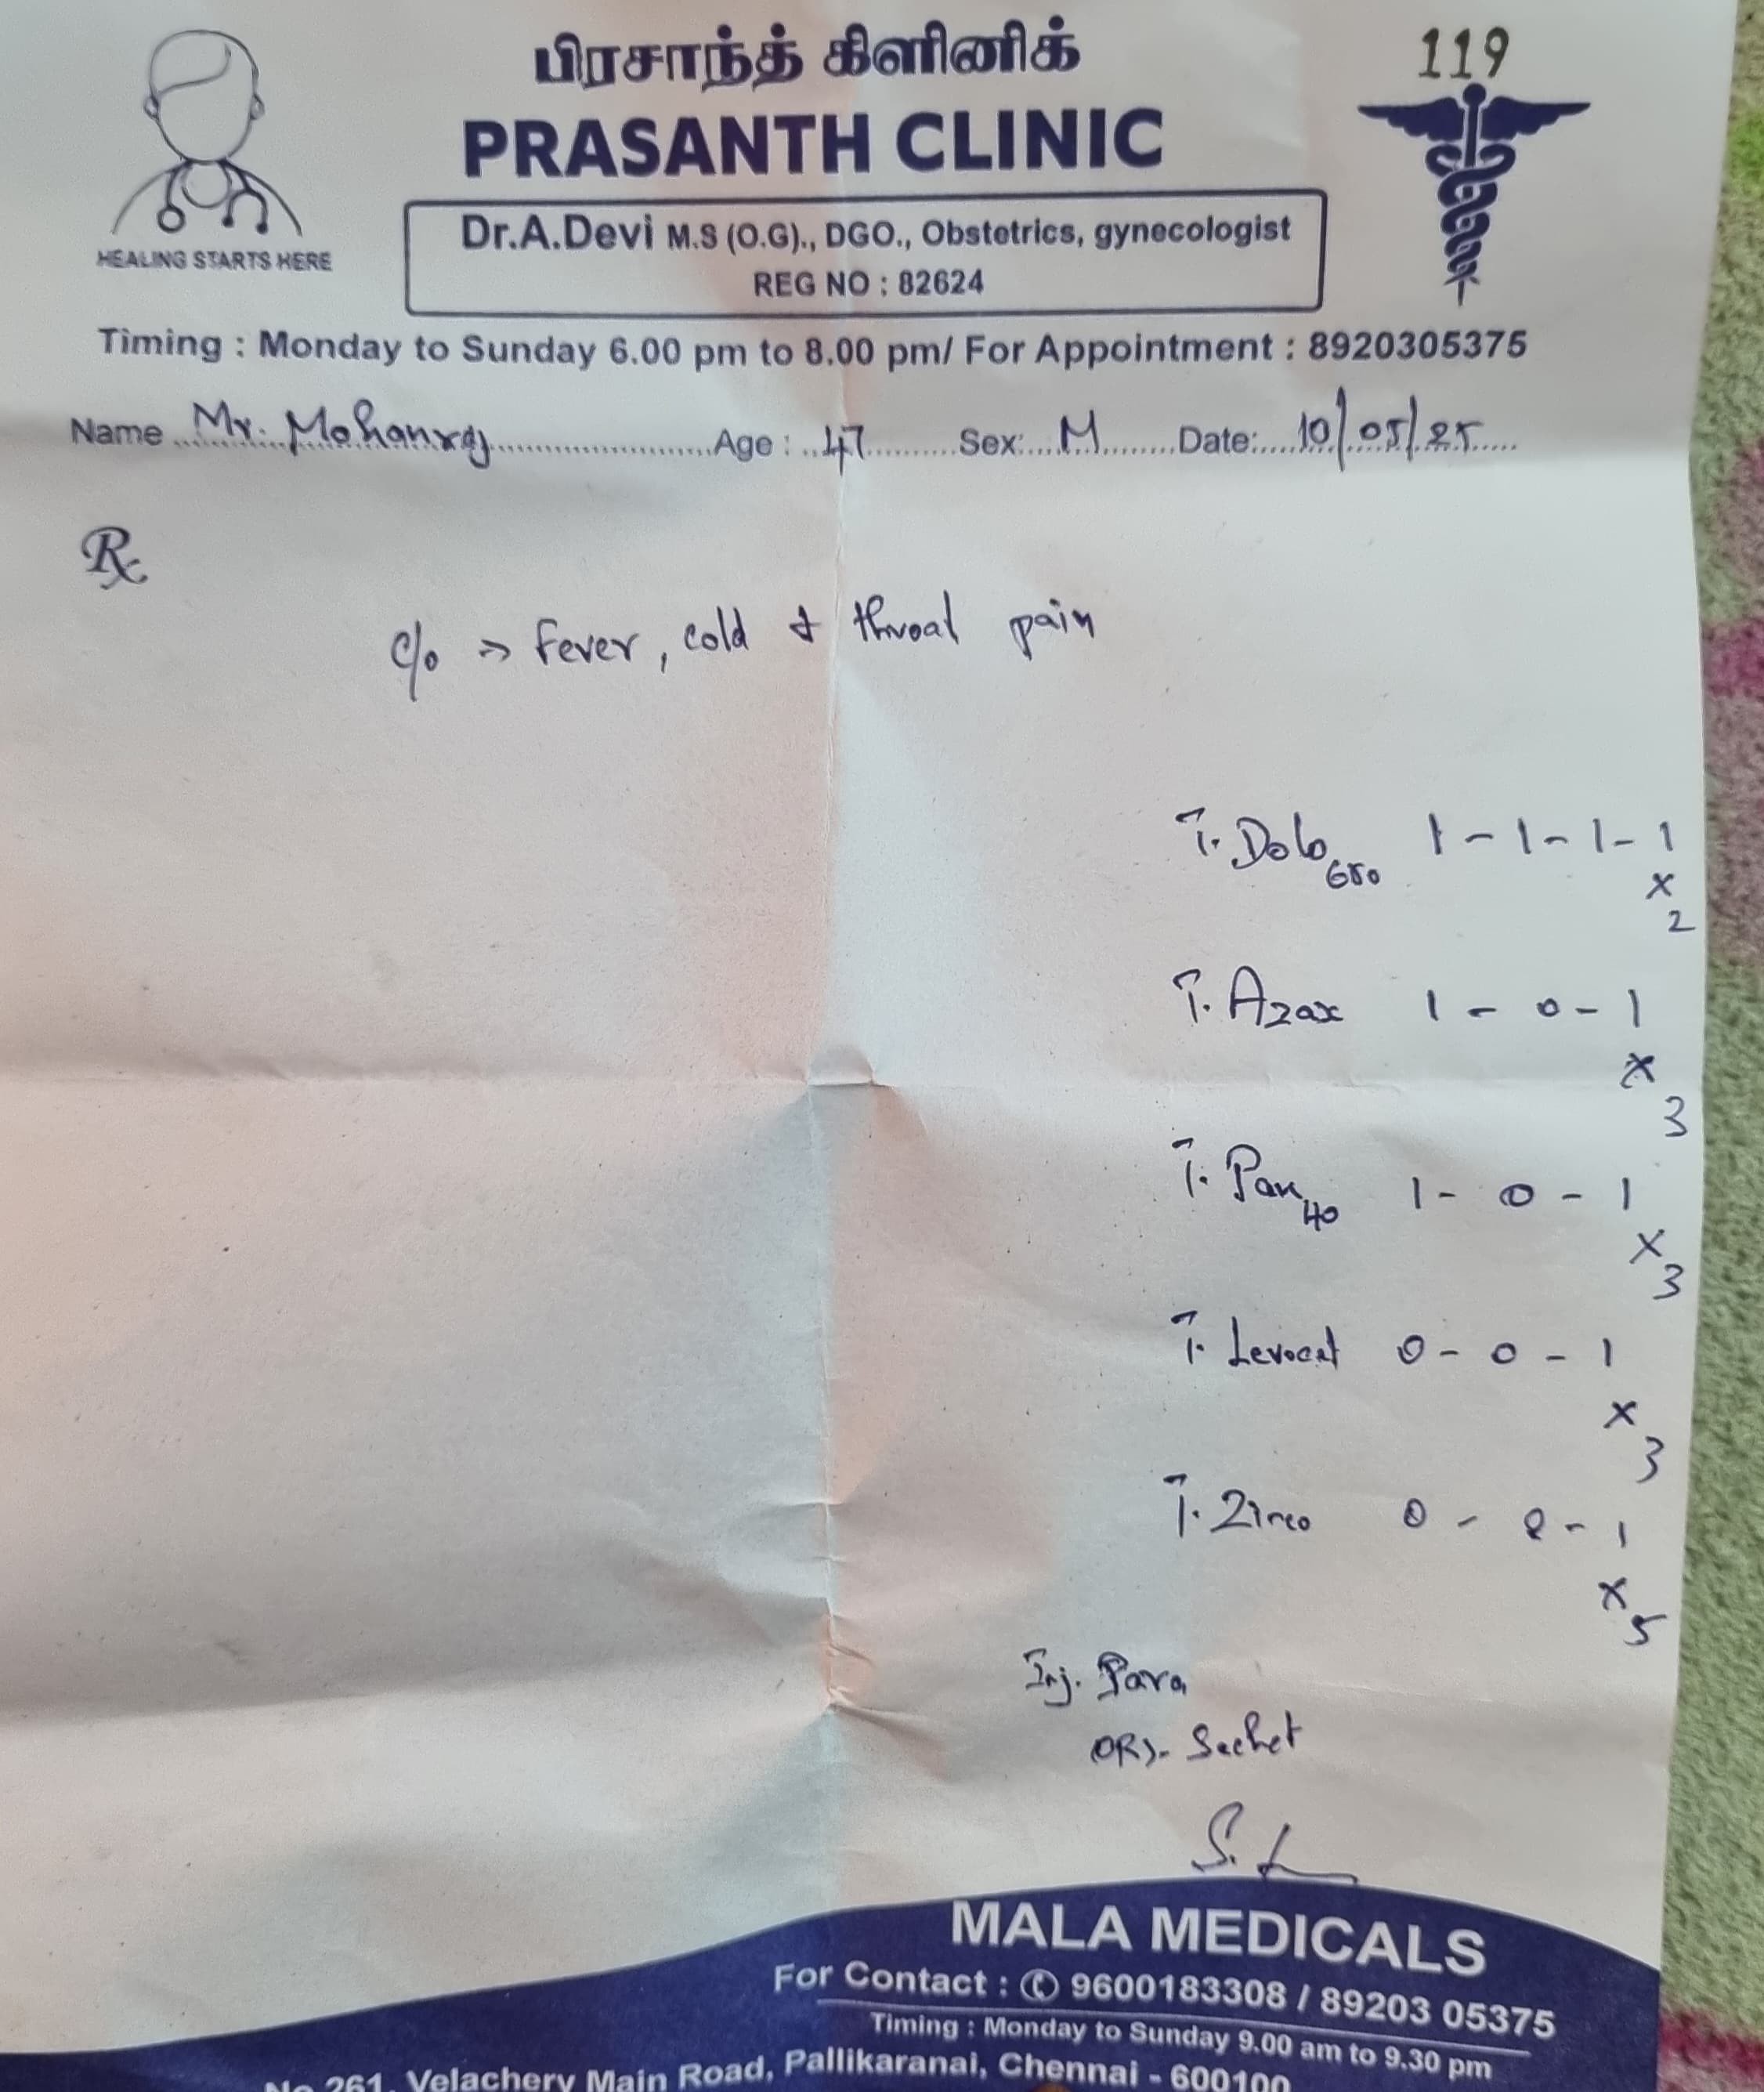 119
பிரசாந்த் கிளினிக்
PRASANTH CLINIC
Dr.A.Devi M.S (O.G)., DGO., Obstetrics, gynecologist
REG NO : 82624
HEALING STARTS HERE
Timing : Monday to Sunday 6.00 pm to 8.00 pm/ For Appointment : 8920305375
Name Mr. Mohanraj Age : 47 Sex: M Date: 10/05/25
Rx
c/o => Fever, cold & throat pain
T. Dolo 650 1 - 1 - 1 - 1
x 2
T. Azax 1 - 0 - 1
x 3
T. Pan 40 1 - 0 - 1
x 3
T. Levocet 0 - 0 - 1
x 3
T. Zinco 0 - 0 - 1
x 5
Inj. Para
ORS - Sachet
MALA MEDICALS
For Contact : 9600183308 / 89203 05375
Timing : Monday to Sunday 9.00 am to 9.30 pm
No 261, Velachery Main Road, Pallikaranai, Chennai - 600100